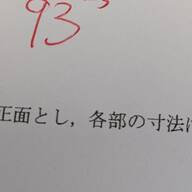 93
正面とし，各部の寸法